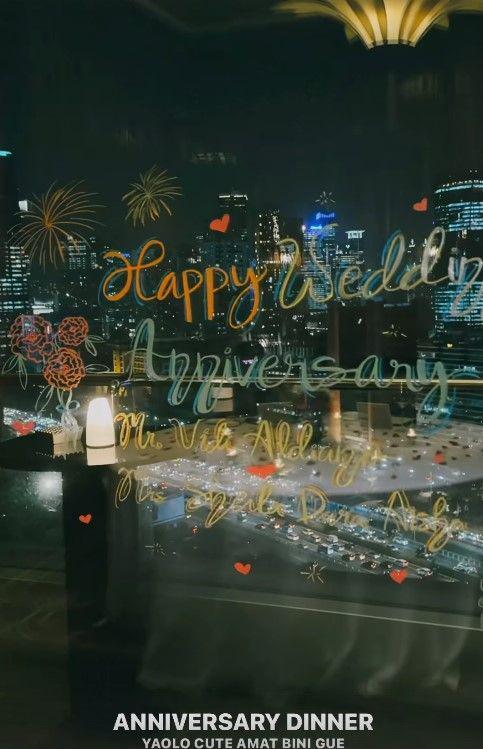 Happy Weddin
Anniversary
Mr. Vidi Aldiano
Mrs Sheila Dara Aisha
ANNIVERSARY DINNER
YAOLO CUTE AMAT BINI GUE